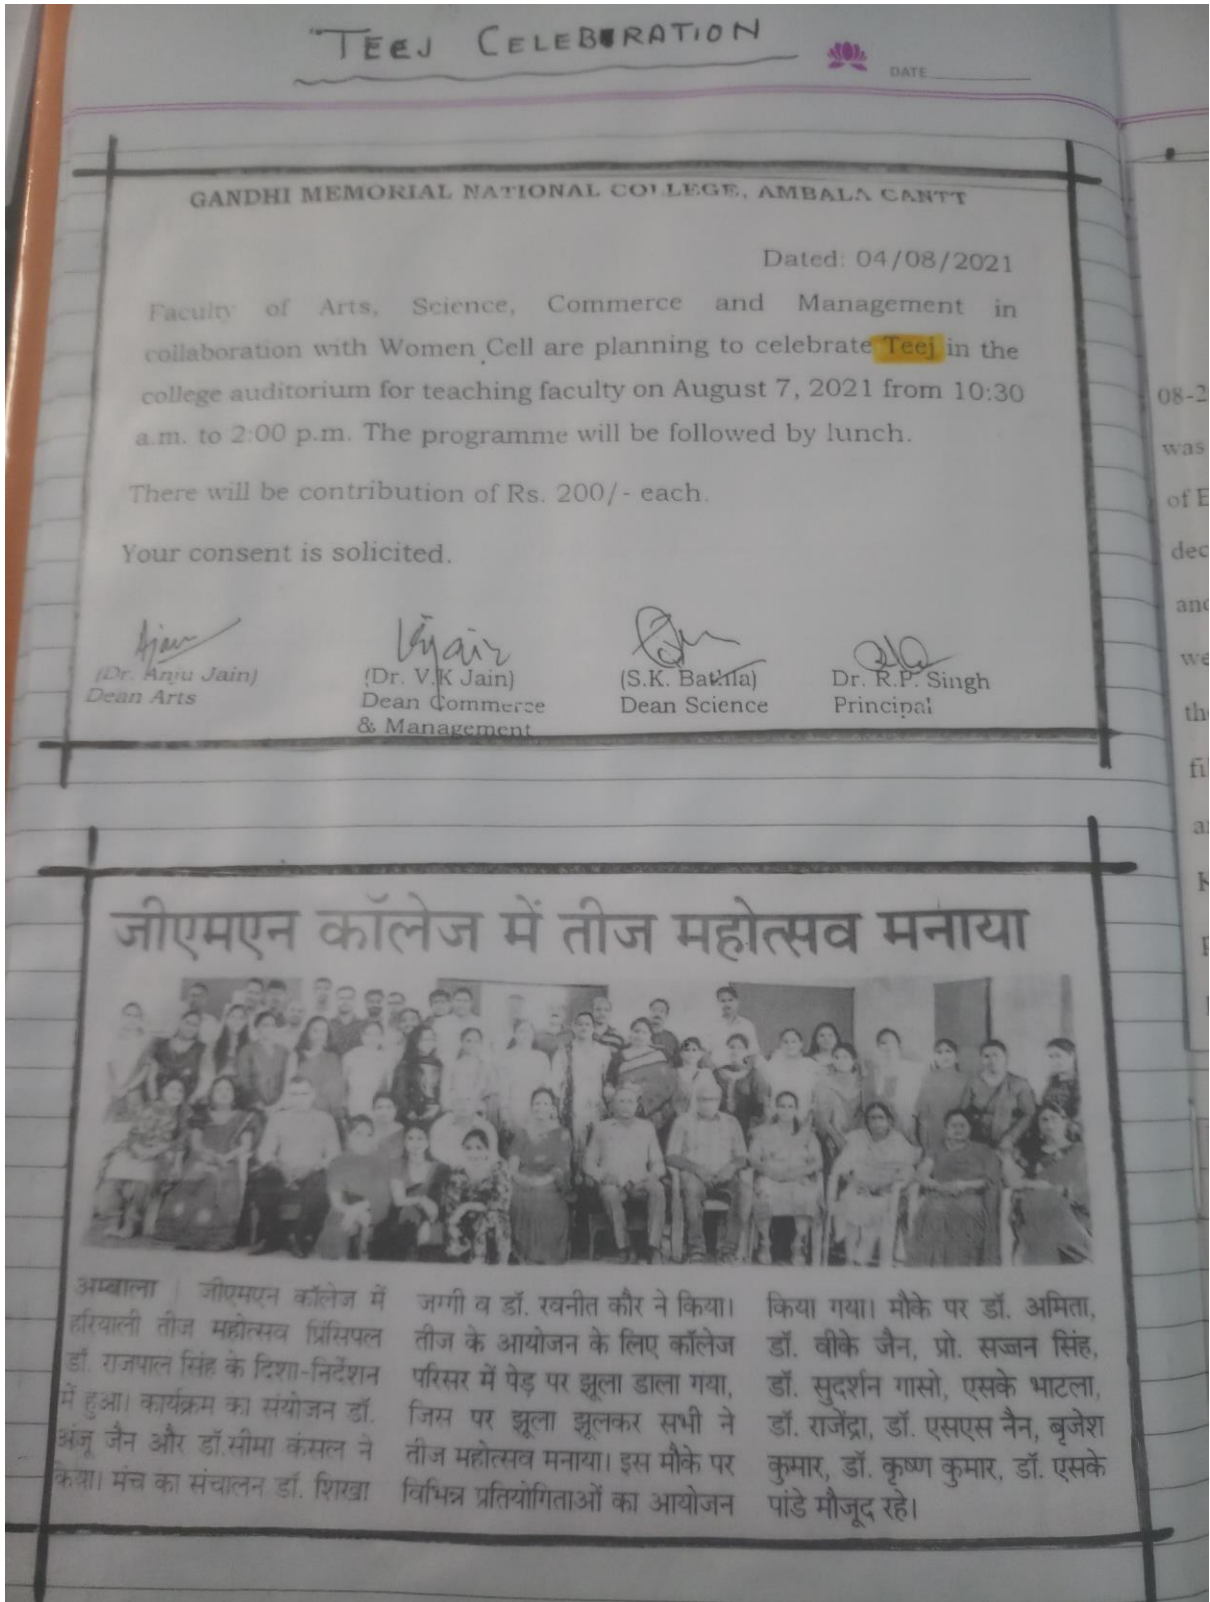 TEEJ CELEBRATION
DATE
GANDHI MEMORIAL NATIONAL COLLEGE, AMBALA CANTT
Dated: 04/08/2021
Faculty of Arts, Science, Commerce and Management in
collaboration with Women Cell are planning to celebrate Teej in the
college auditorium for teaching faculty on August 7, 2021 from 10:30
a.m. to 2:00 p.m. The programme will be followed by lunch.
There will be contribution of Rs. 200/- each.
Your consent is solicited.
(Dr. Anju Jain) (Dr. V.K Jain) (S.K. Bathla) Dr. R.P. Singh
Dean Arts Dean Commerce Dean Science Principal
& Management
जीएमएन कॉलेज में तीज महोत्सव मनाया
अम्बाला | जीएमएन कॉलेज में
हरियाली तीज महोत्सव प्रिंसिपल
डॉ. राजपाल सिंह के दिशा-निर्देशन
में हुआ। कार्यक्रम का संयोजन डॉ.
अंजू जैन और डॉ.सीमा कंसल ने
किया। मंच का संचालन डॉ. शिखा
जग्गी व डॉ. रवनीत कौर ने किया।
तीज के आयोजन के लिए कॉलेज
परिसर में पेड़ पर झूला डाला गया,
जिस पर झूला झूलकर सभी ने
तीज महोत्सव मनाया। इस मौके पर
विभिन्न प्रतियोगिताओं का आयोजन
किया गया। मौके पर डॉ. अमिता,
डॉ. वीके जैन, प्रो. सज्जन सिंह,
डॉ. सुदर्शन गासो, एसके भाटला,
डॉ. राजेंद्रा, डॉ. एसएस नैन, बृजेश
कुमार, डॉ. कृष्ण कुमार, डॉ. एसके
पांडे मौजूद रहे।
08-2
was
of E